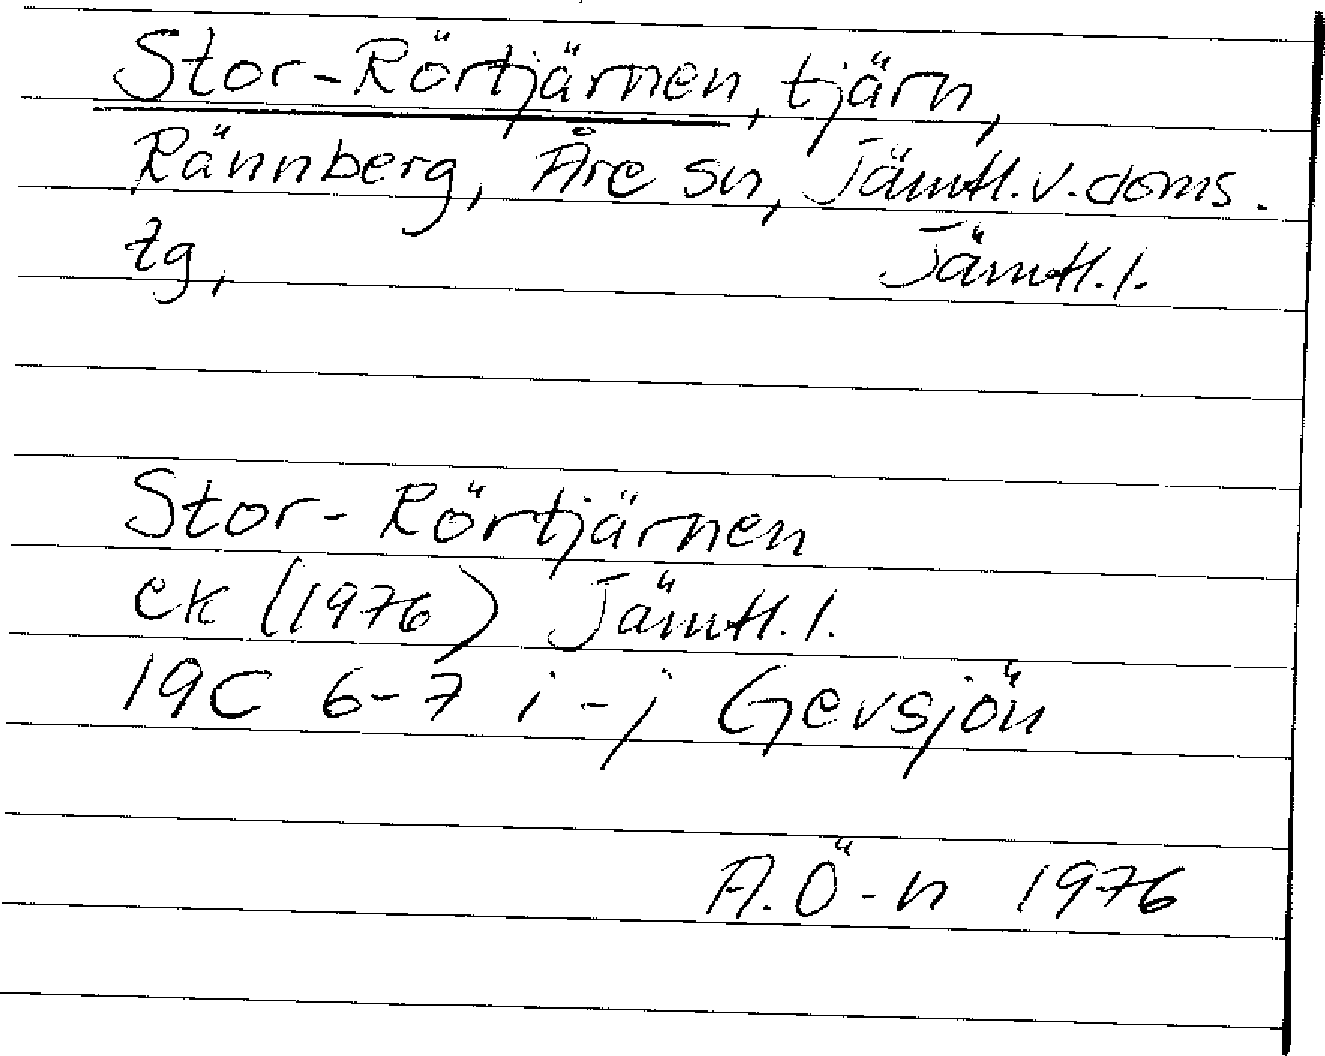 Stor-Rörtjärnen, tjärn,
Rännberg, Åre sn, Jämtl. v. doms.
tg, Jämtl. l.
Stor-Rörtjärnen
ek (1976) Jämtl. l.
19C 6-7 i-j Gevsjön
A. Ö-n 1976